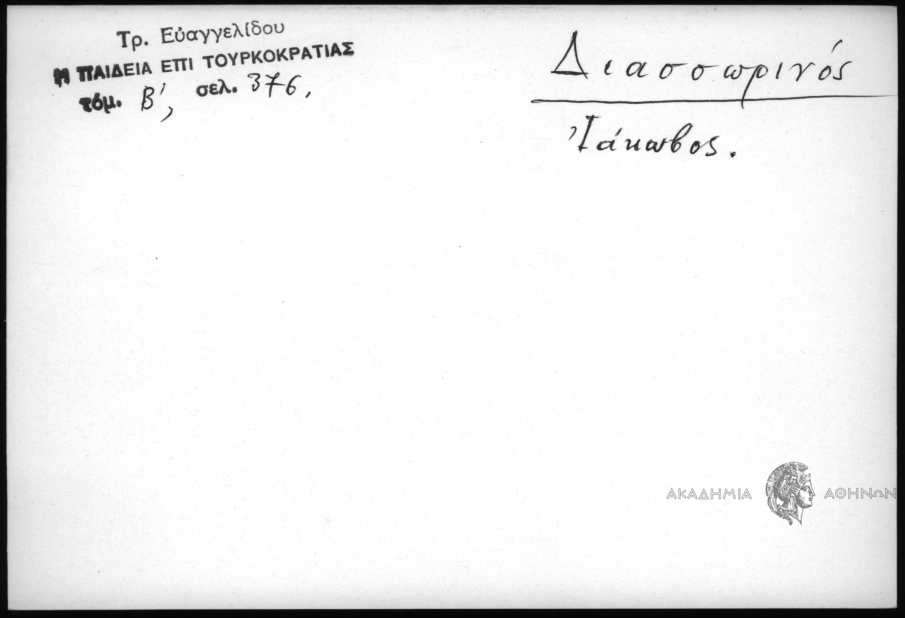 Τρ. Εὐαγγελίδου
Η ΠΑΙΔΕΙΑ ΕΠΙ ΤΟΥΡΚΟΚΡΑΤΙΑΣ
τόμ. Β', σελ. 376.
Διασσωρινός
Ἰάκωβος.
ΑΚΑΔΗΜΙΑ ΑΘΗΝΩΝ